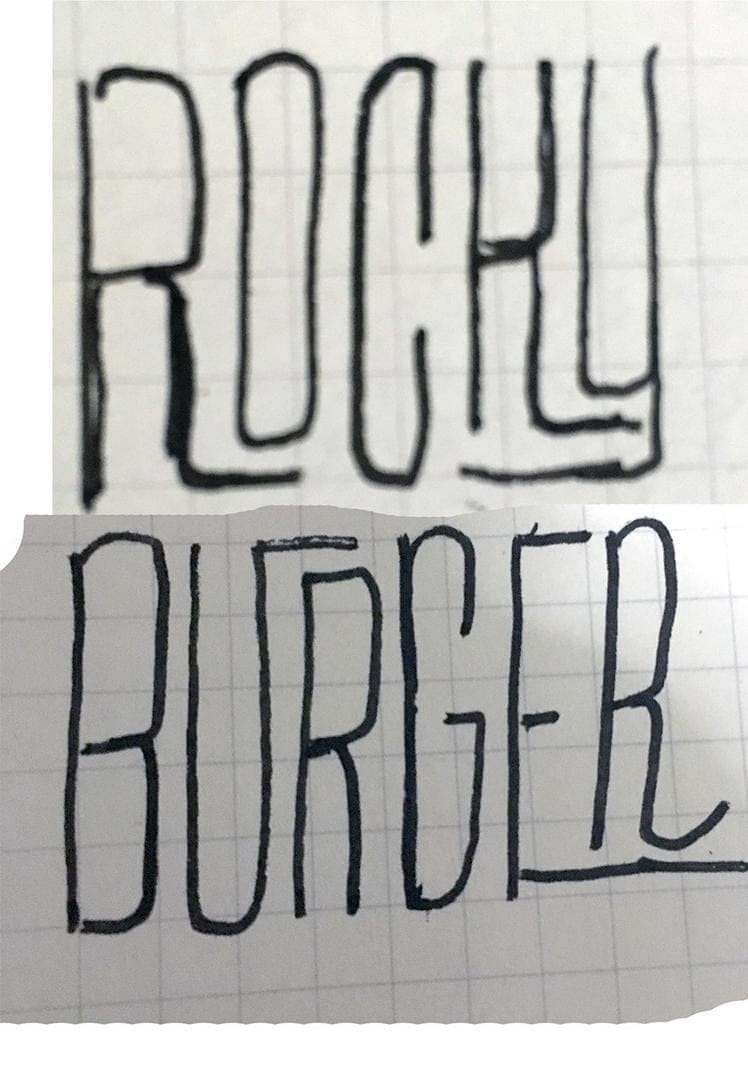 ROCKY
BURGER